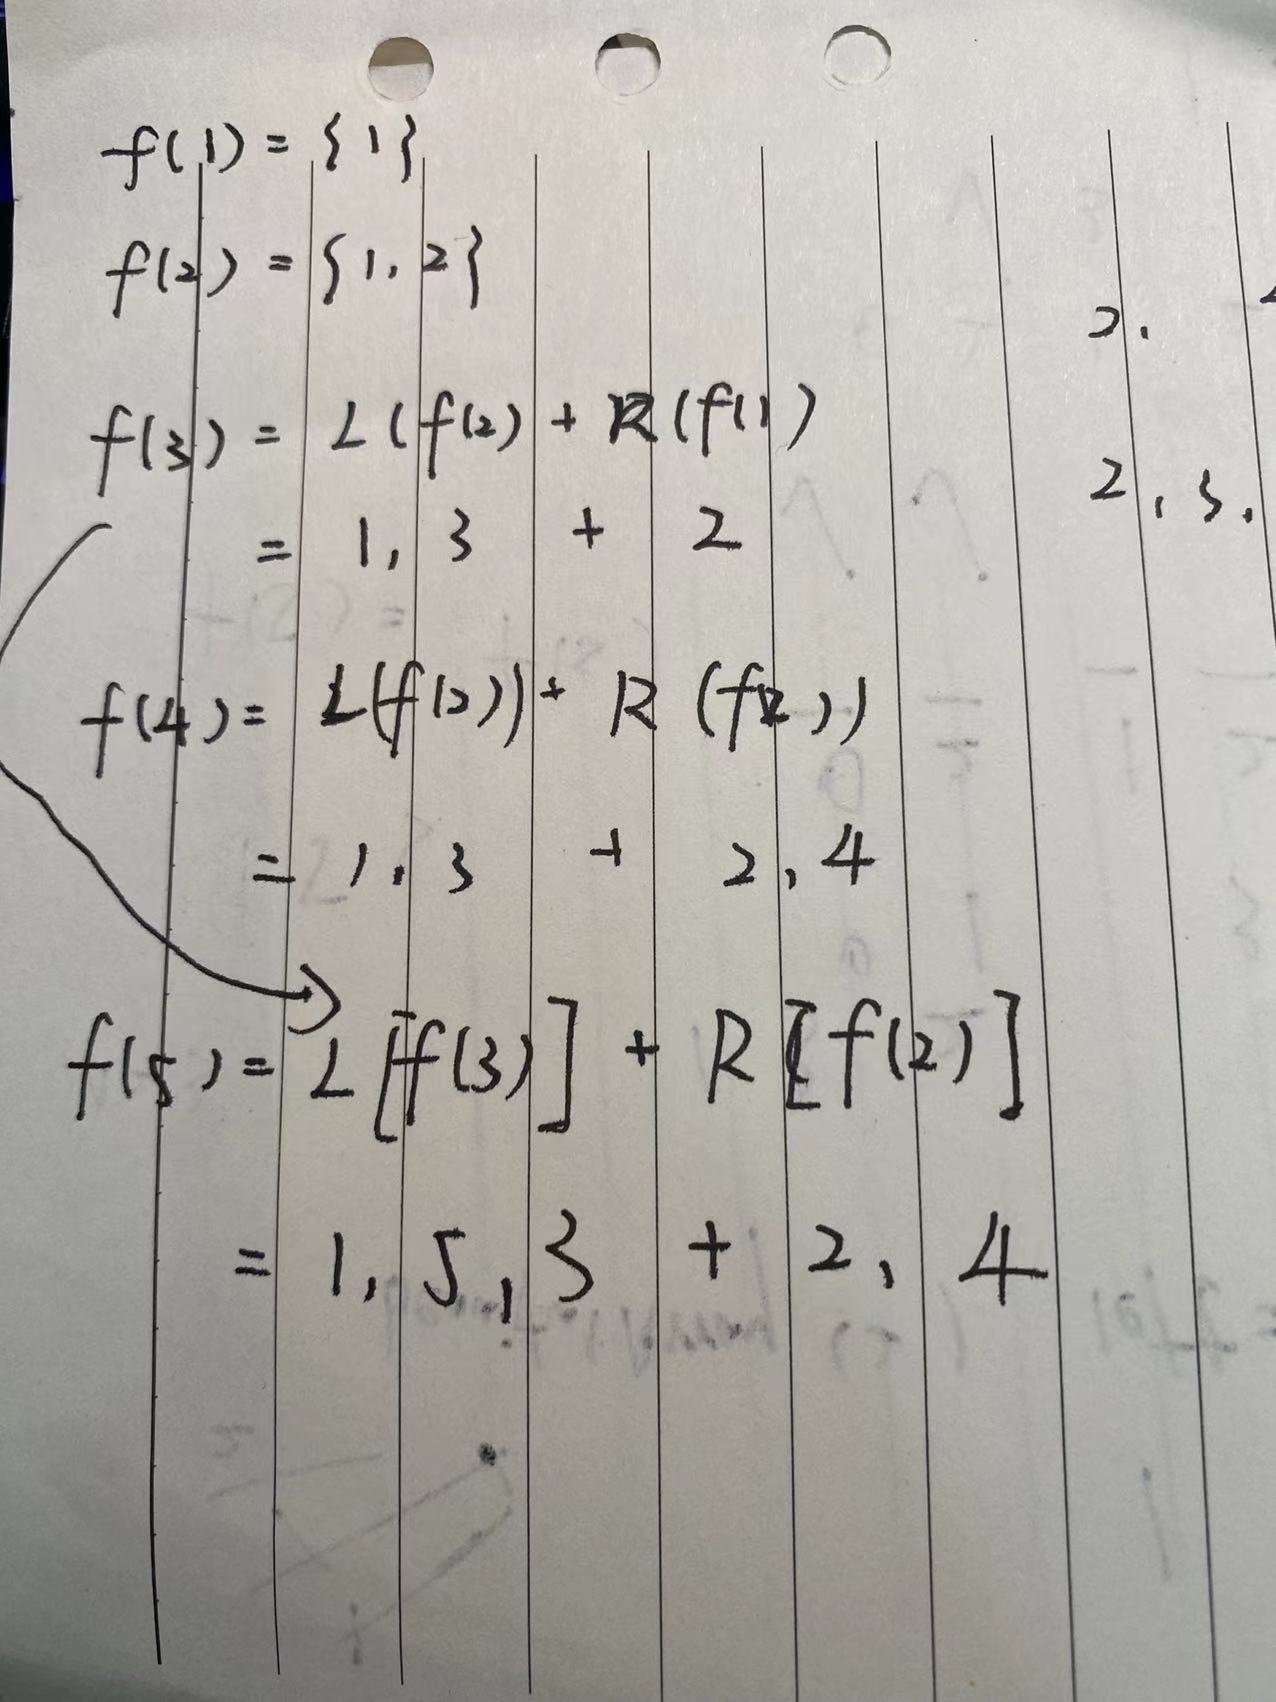 f(1) = {1}
f(2) = {1, 2}
f(3) = L(f(2) + R(f(1)
= 1, 3 + 2
f(4) = L(f(2)) + R(f(2))
= 1, 3 + 2, 4
f(5) = L[f(3)] + R[f(2)]
= 1, 5, 3 + 2, 4
2.
2, 3.